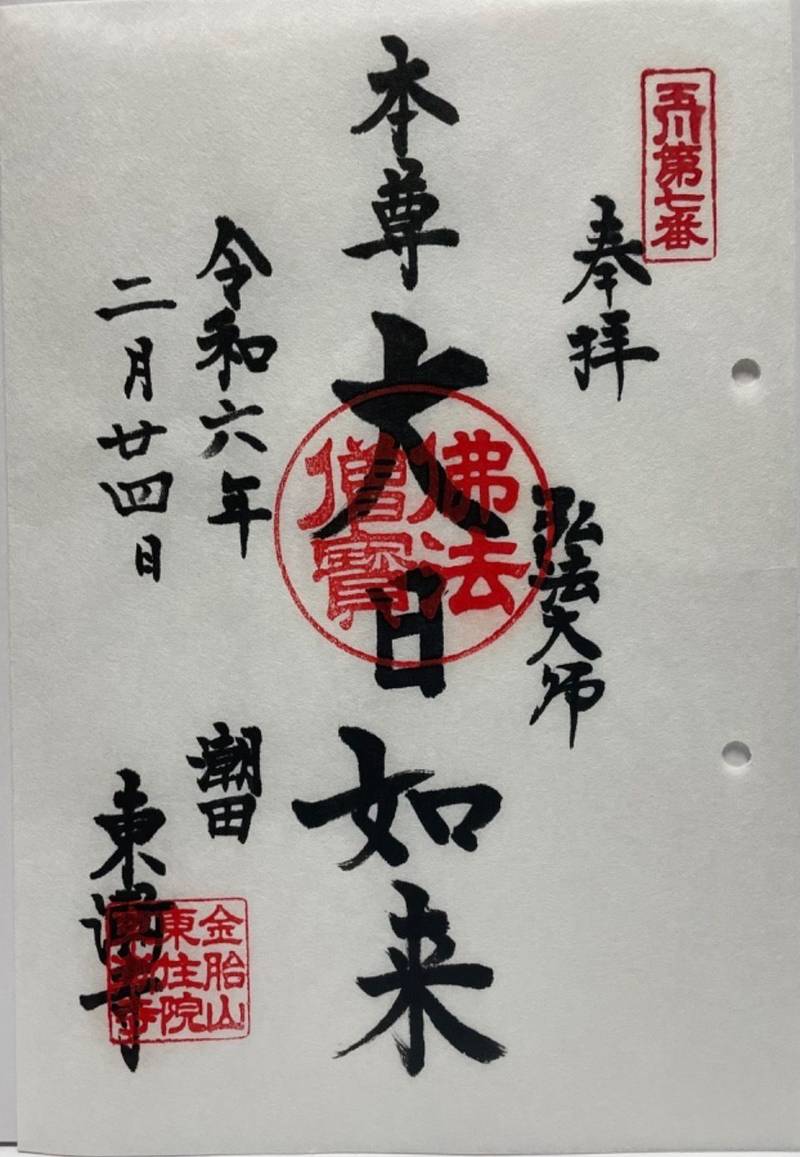 玉川第七番
奉拝
弘法大師
本尊 大日如来
佛法
僧寶
令和六年
二月廿四日
潮田
東漸寺
金胎山
東住院
東漸寺